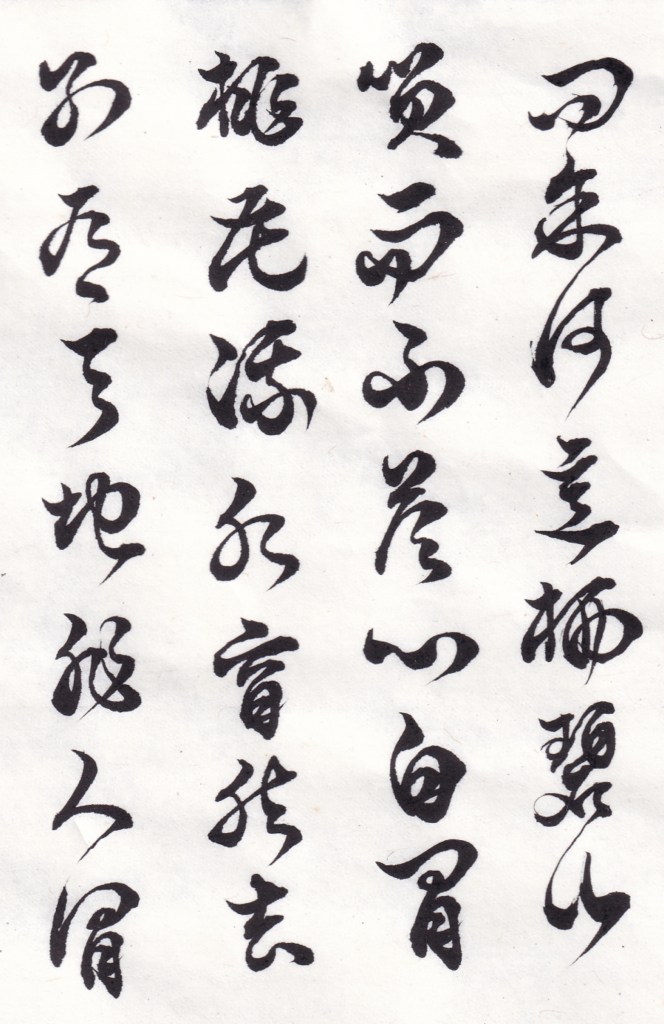 問余何意栖碧山
笑而不答心自閑
桃花流水窅然去
別有天地非人間